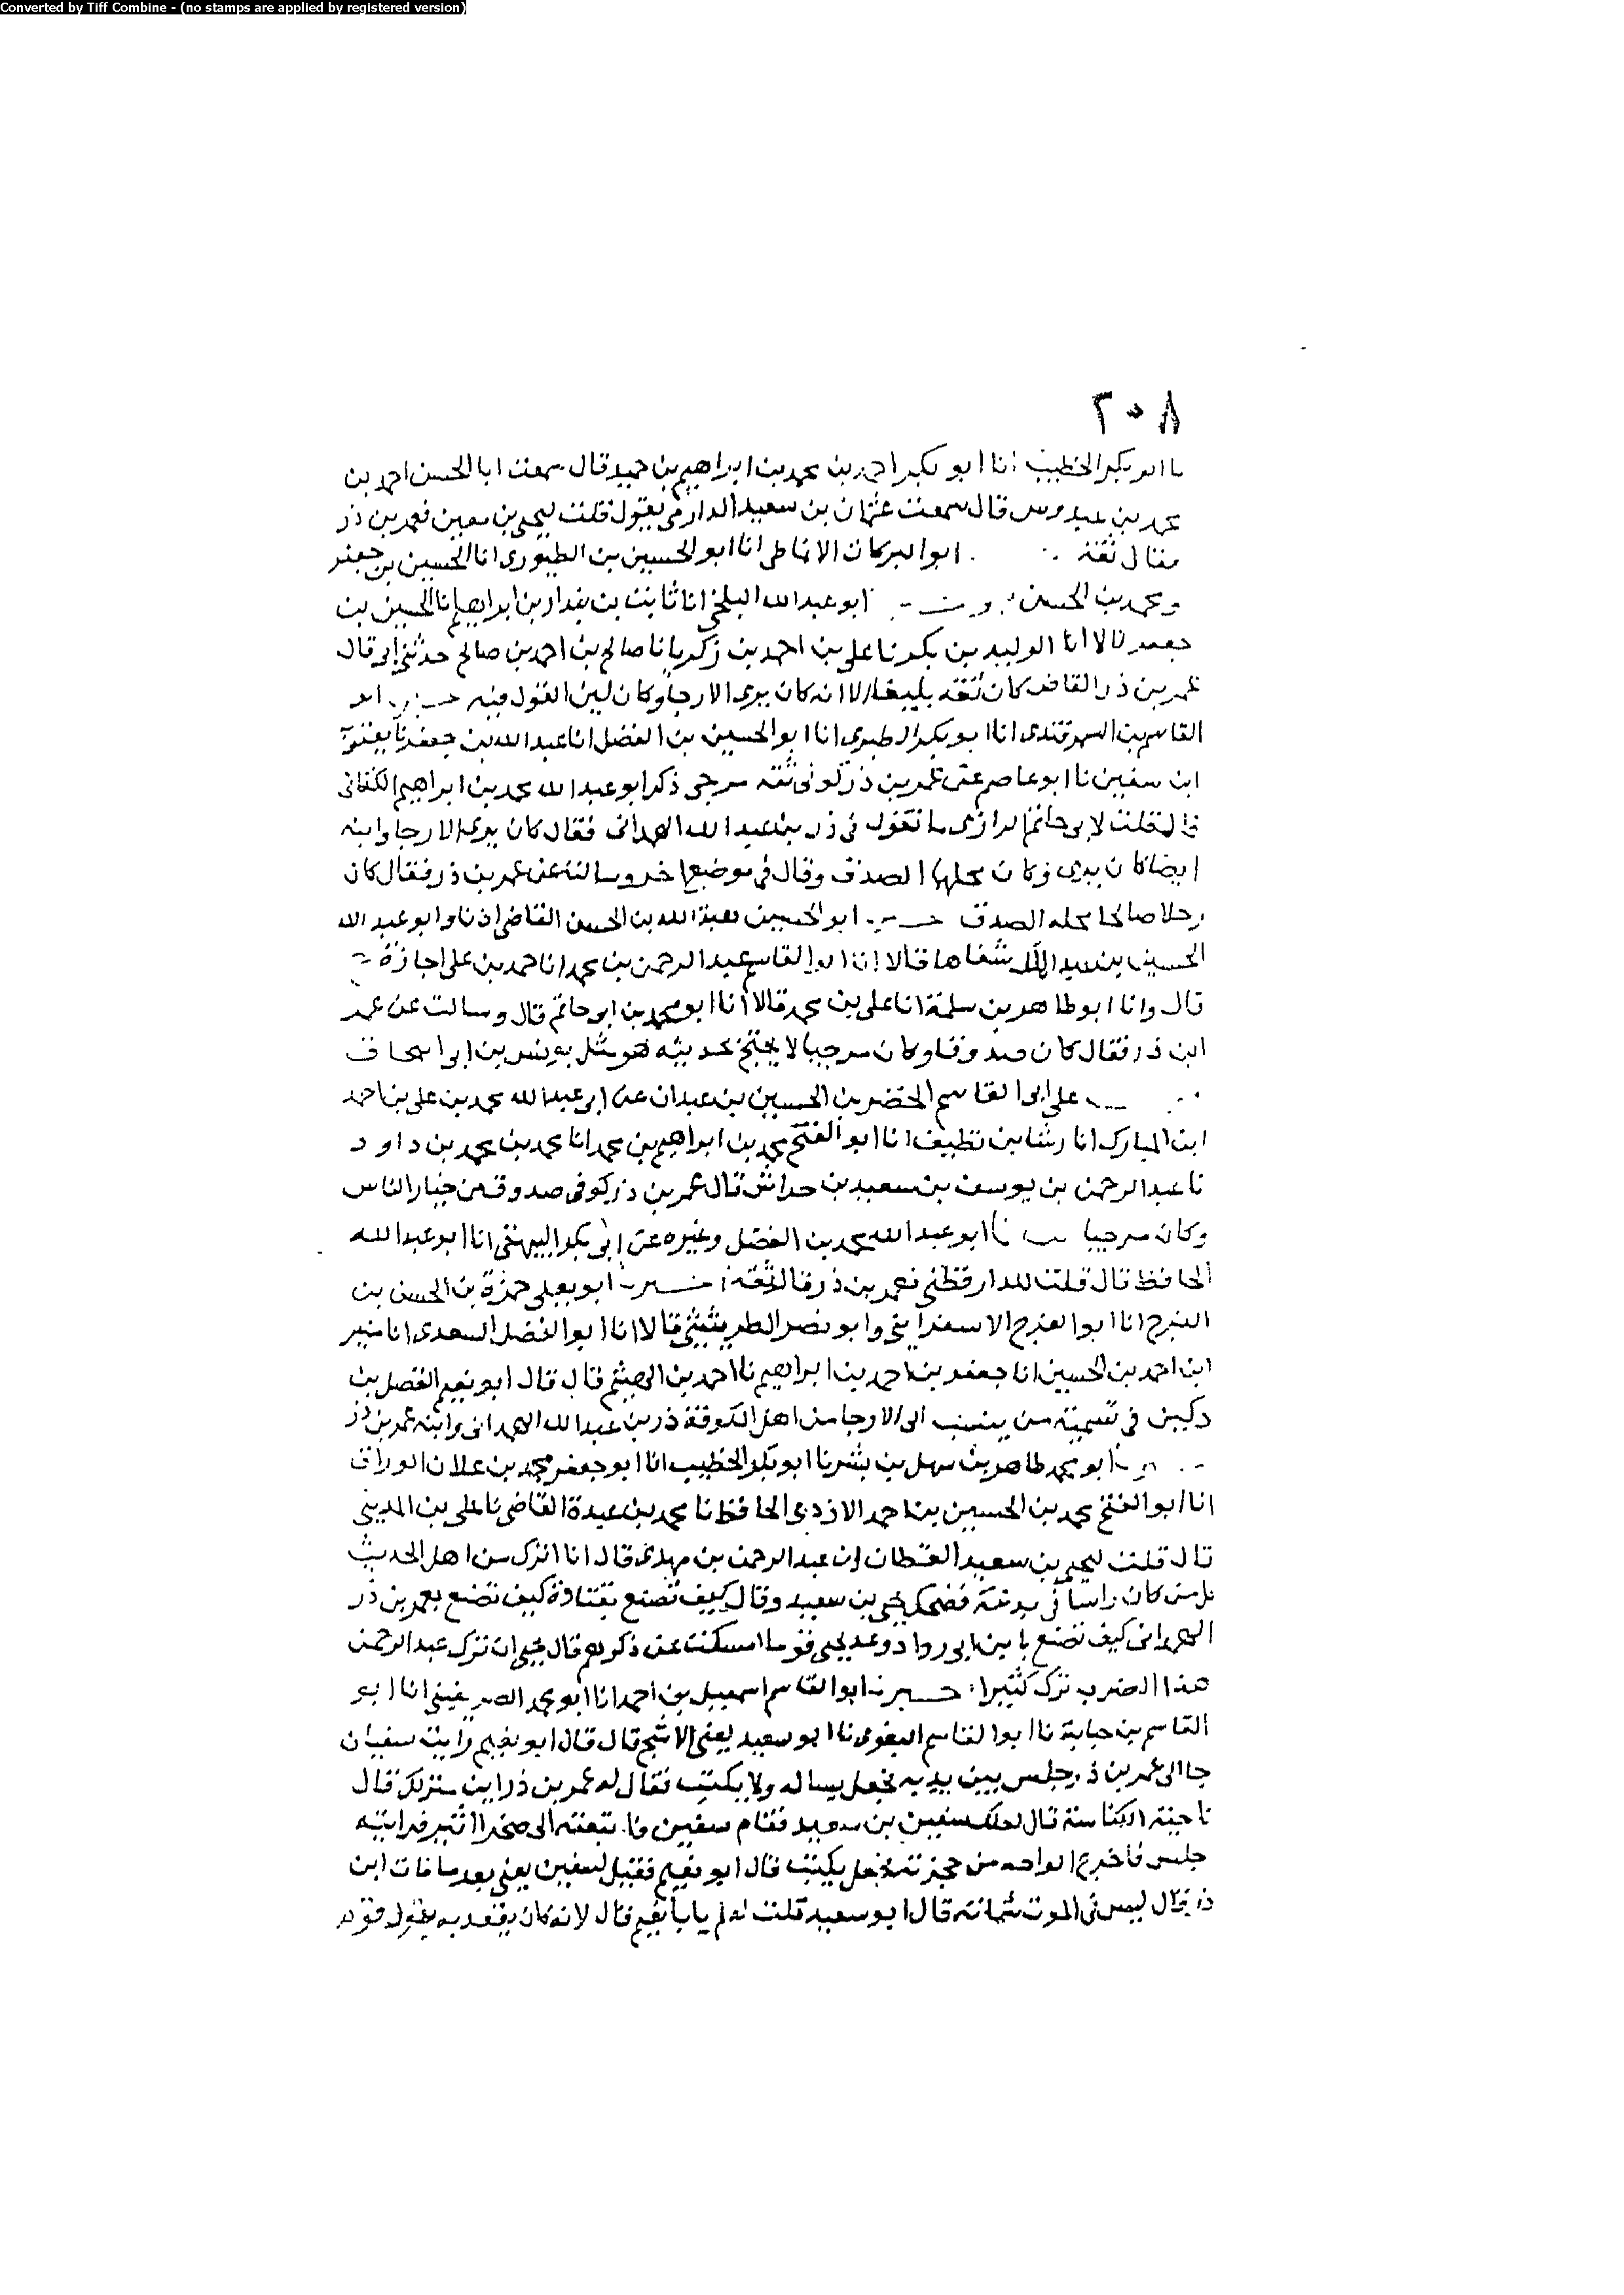 Converted by Tiff Combine - (no stamps are applied by registered version)
٢٠٨
نا ابو بكر الخطيب انا ابو بكر احمد بن محمد بن ابراهيم بن حميد قال سمعت ابا الحسن احمد بن
محمد بن عبدوس قال سمعت عثمان بن سعيد الدارمي يقول قلت ليحيى بن معين فعمر بن ذر
فقال ثقة ابو البركات الانماطي انا ابو الحسين بن الطيوري انا الحسين بن جعفر
ومحمد بن الحسن ابو عبد الله البلخي انا ثابت بن بندار بن ابراهيم انا الحسين بن
جعفر قالا انا الوليد بن بكر نا علي بن احمد بن زكريا نا صالح بن احمد بن صالح حدثني ابي قال
عمر بن ذر القاص كان ثقة بليغا الا انه كان يرى الارجا وكان لين القول فيه ابو
القاسم بن السمرقندي انا ابو بكر الطبري انا ابو الحسين بن الفضل انا عبد الله بن جعفر نا يعقوب
ابن سفين نا ابو عاصم عن عمر بن ذر كوفي ثقة مرجي ذكر ابو عبد الله محمد بن ابراهيم الكتاني
قال قلت لابي حاتم الرازي ما تقول في ذر بن عبد الله الهمداني فقال كان يرى الارجا وابنه
ايضا كان يرى وكان محلهما الصدق وقال في موضع اخر وسالته عن عمر بن ذر فقال كان
رجلا صالحا محله الصدق ابو الحسين هبة الله بن الحسن القاضي اذنا وابو عبد الله
الحسين بن عبد الملك شفاها قالا انا ابو القاسم عبد الرحمن بن محمد انا حمد بن علي اجازة
قال وانا ابو طاهر بن سلمة انا علي بن محمد قالا انا ابو محمد بن ابي حاتم قال وسالت عن عمر
ابن ذر فقال كان صدوقا وكان مرجيا لا يحتج بحديثه هو مثل يونس بن ابي اسحاق
على ابي القاسم الخضر بن الحسين بن عبدان عن ابي عبد الله محمد بن علي بن احمد
ابن المبارك انا رشا بن نظيف انا ابو الفتح محمد بن ابراهيم بن محمد انا محمد بن محمد بن داود
نا عبد الرحمن بن يوسف بن سعيد بن خراش قال عمر بن ذر كوفي صدوق من خيار الناس
وكان مرجيا ابو عبد الله محمد بن الفضل وغيره عن ابي بكر البيهقي انا ابو عبد الله
الحافظ قال قلت للدارقطني فعمر بن ذر قال ثقة ابو يعلى حمزة بن الحسن بن
الفرج انا ابو الفرج الاسفرايني وابو نصر الطريثيثي قالا انا ابو الفضل السعدي انا منير
ابن احمد بن الحسين انا جعفر بن احمد بن ابراهيم نا احمد بن الهيثم قال قال ابو نعيم الفضل بن
دكين في تسمية من ينسب الى الارجا من اهل الكوفة ذر بن عبد الله الهمداني وابنه عمر بن ذر
ابو محمد طاهر بن سهل بن بشر نا ابو بكر الخطيب انا ابو جعفر محمد بن علان الوراق
انا ابو الفتح محمد بن الحسين بن احمد الازدي الحافظ نا محمد بن عبدة القاضي نا علي بن المديني
قال قلت ليحيى بن سعيد القطان ان عبد الرحمن بن مهدي قال انا اترك من اهل الحديث
كل من كان راسا في بدعة فضحك يحيى بن سعيد وقال كيف تصنع بقتادة كيف تصنع بعمر بن ذر
الهمداني كيف تصنع بابن ابي رواد وعد يحيى قوما امسكت عن ذكرهم قال يحيى ان ترك عبد الرحمن
هذا الضرب ترك كثيرا ابو القاسم اسمعيل بن احمد انا ابو محمد الصريفيني انا ابو
القاسم بن حبابة نا ابو القاسم البغوي نا ابو سعيد يعني الاشج قال قال ابو نعيم رايت سفيان
جا الى عمر بن ذر فجلس بين يديه فجعل يساله ولا يكتب فقال له عمر بن ذر اين منزلك قال
ناحية الكناسة قال لعلك سفين بن سعيد فقام سفين فاتبعته الى صخرا اثير فرايته
جلس فاخرج الواحه من حجزته فجعل يكتب قال ابو نعيم فقيل لسفين يعني بعد ما مات ابن
ذر فقال ليس في الموت شماتة قال ابو سعيد قلت له لم يابا نعيم قال لانه كان يقعد به يقول قوم